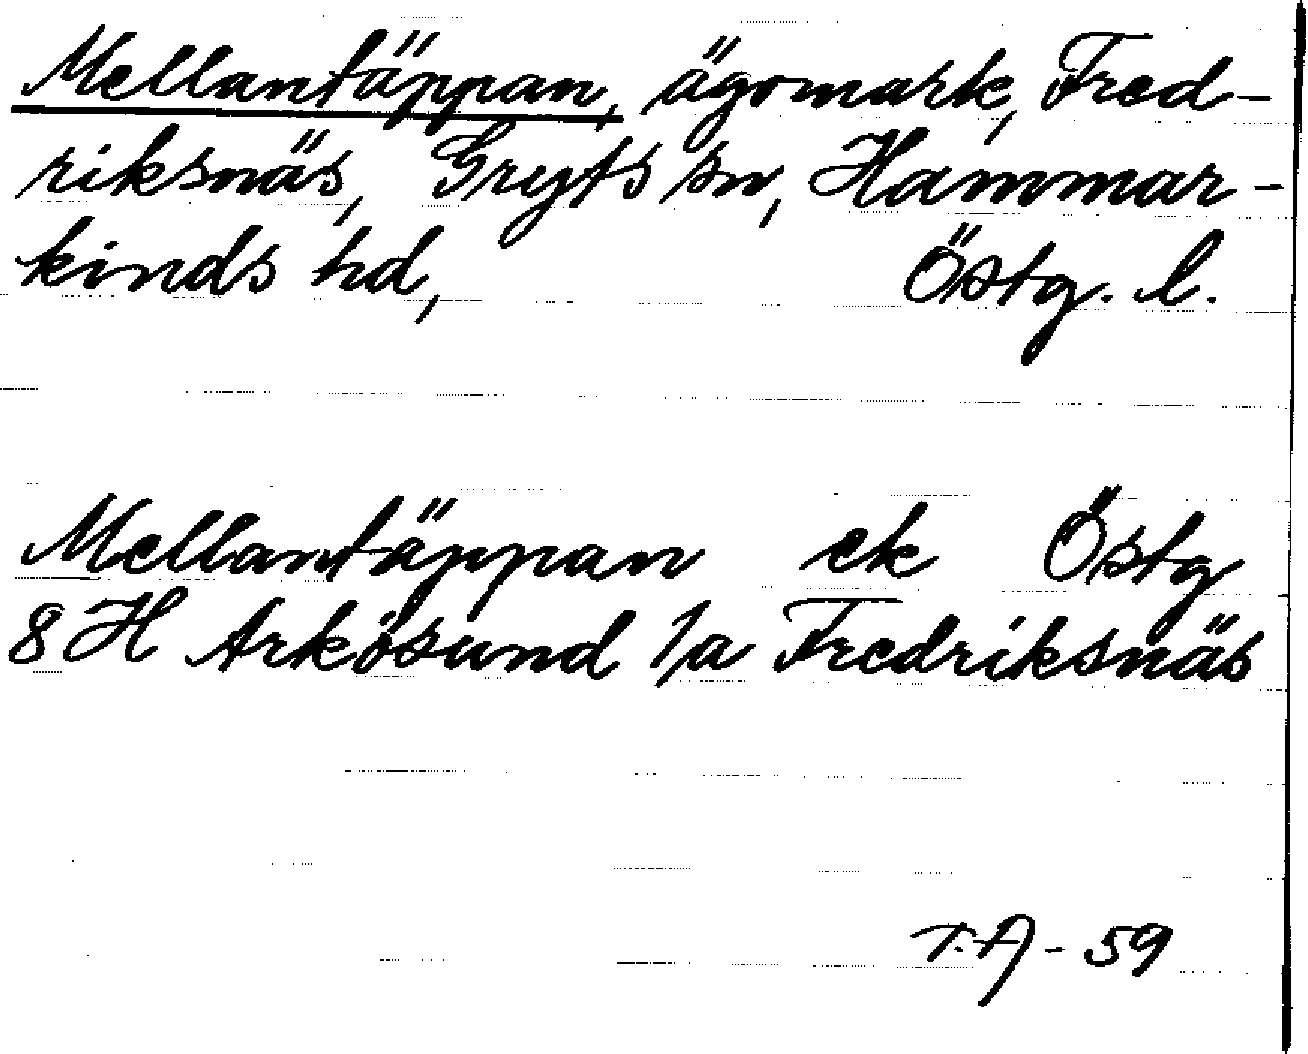 Mellantäppan, ägomark, Fred-
riksnäs, Gryts sn, Hammar-
kinds hd, Östg. l.
Mellantäppan ek Östg
8 H Arkösund 1/a Fredriksnäs
T.A - 59